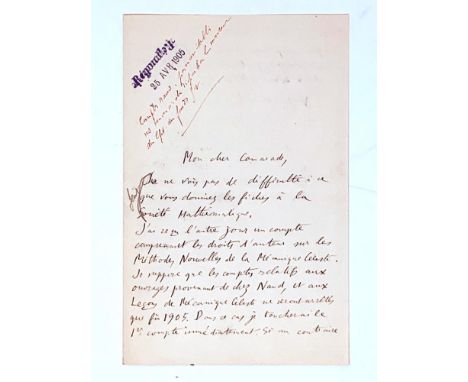 Répondu le
25 AVR 1905
Mon cher Camarade,
Je ne vois pas de difficulté à ce
que vous donniez les fiches à la
Société Mathématique.
J'ai reçu l'autre jour un compte
comprenant les droits d'auteur sur les
Méthodes Nouvelles de la Mécanique Céleste.
Je suppose que les comptes relatifs aux
ouvrages provenant de chez Naud, et aux
Leçons de Mécanique Céleste ne seront
que fin 1905. Dans ce cas je toucherai le
1er compte immédiatement. Si au contraire